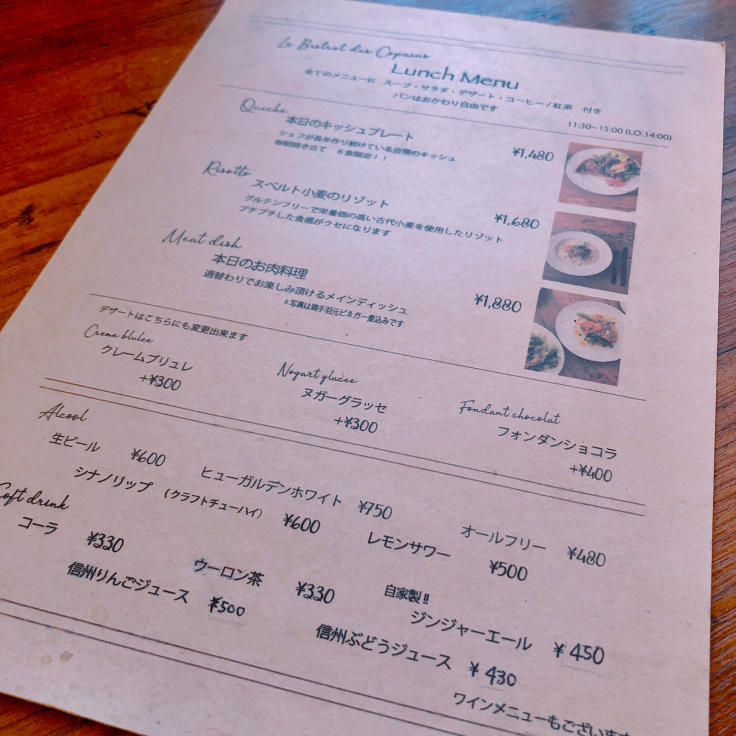 Le Bistrot des Copains
Lunch Menu
全てのメニューに スープ・サラダ・デザート・コーヒー/紅茶 付き
パンはおかわり自由です
11:30~15:00 (LO.14:00)
Quiche
本日のキッシュプレート ¥1,480
シェフが長年作り続けている自慢のキッシュ
毎朝焼き立て 6食限定！！
Risotto
スペルト小麦のリゾット ¥1,680
グルテンフリーで栄養価の高い古代小麦を使用したリゾット
プチプチした食感がクセになります
Meat dish
本日のお肉料理 ¥1,880
週替わりでお楽しみ頂けるメインディッシュ
※写真は鶏手羽元ビネガー煮込みです
デザートはこちらにも変更出来ます
Creme blulee
クレームブリュレ
+¥300
Nogart glacee
ヌガーグラッセ
+¥300
Fondant chocolat
フォンダンショコラ
+¥400
Alcool
生ビール ¥600 ヒューガルデンホワイト ¥750 オールフリー ¥480
シナノリップ (クラフトチューハイ) ¥600 レモンサワー ¥500
Soft drink
コーラ ¥330 ウーロン茶 ¥330 自家製!! ジンジャーエール ¥450
信州りんごジュース ¥500 信州ぶどうジュース ¥430
ワインメニューもございます